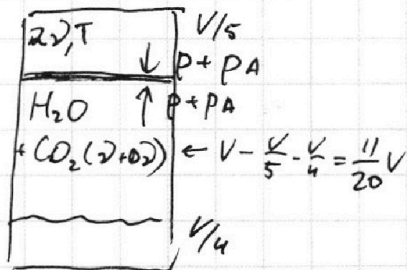 2ν, T V/5
↓ p + pA
H₂O ↑ p + pA
+ CO₂(ν+Δν) ← V - V/5 - V/4 = 11/20 V
V/4